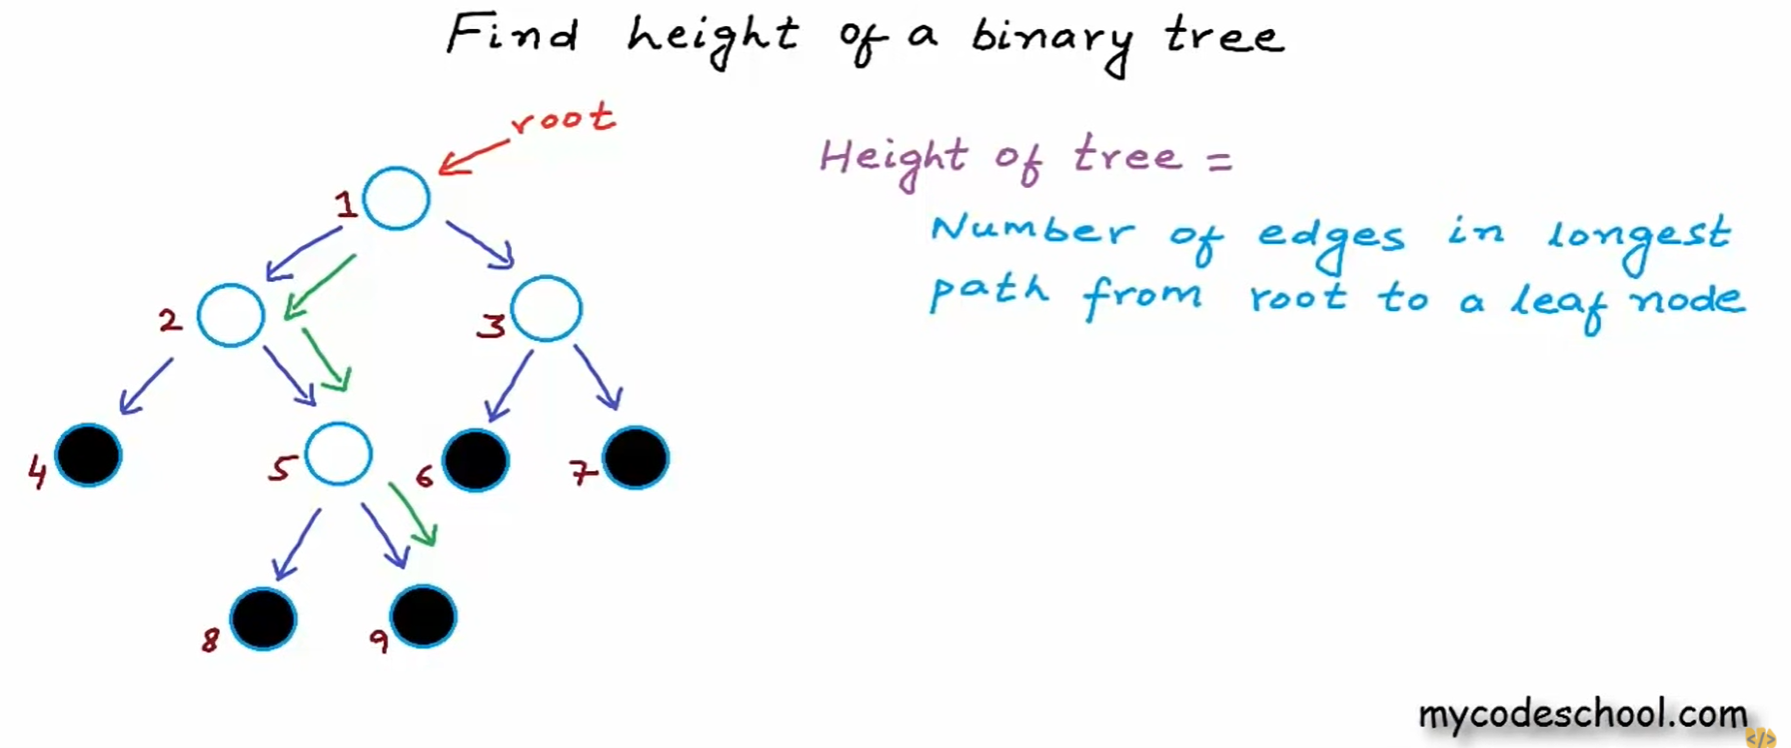 Find height of a binary tree
root
Height of tree =
Number of edges in longest
path from root to a leaf node
1
2
3
4
5
6
7
8
9
mycodeschool.com
</>